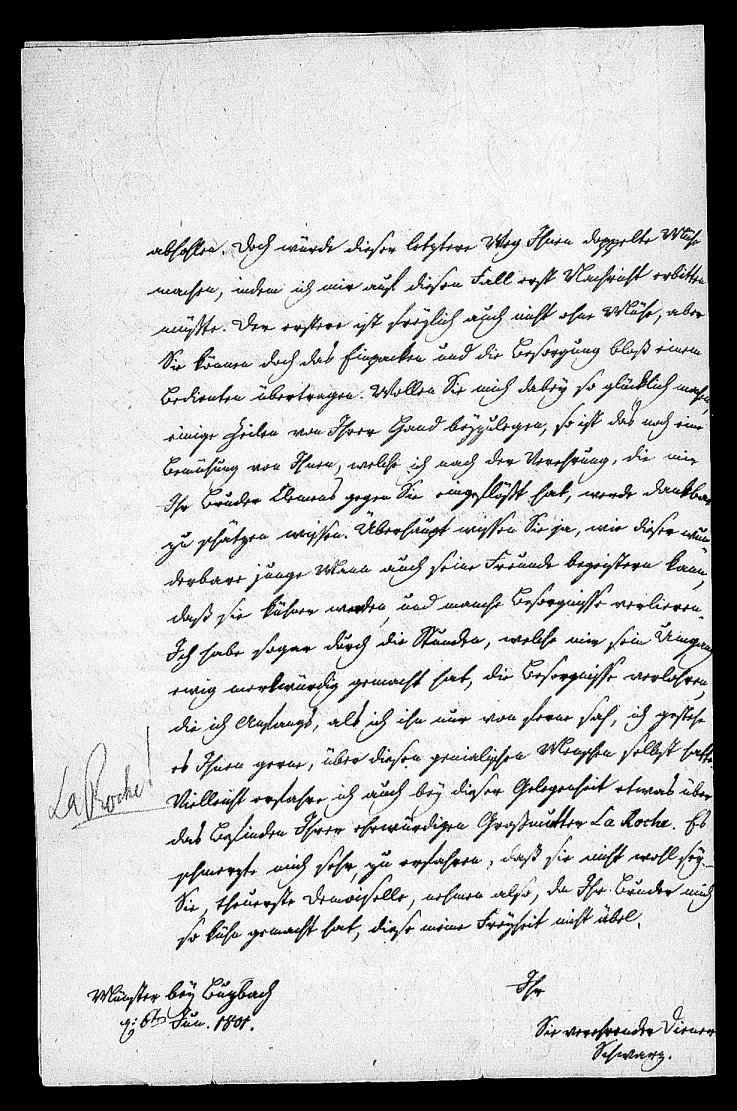 abhohlen. Doch würde dieser letztere Weg Ihnen doppelte Mühe
machen, indem ich mir auf diesen Fall erst Nachricht erbitten
müßte. Der erstere ist freylich auch nicht ohne Mühe, aber
Sie können doch das Einpacken und die Besorgung bloß einem
Bedienten übertragen. Wollen Sie mich dabey so glücklich machen,
einige Zeilen von Ihrer Hand beyzulegen, so ist das noch eine
Bemühung von Ihnen, welche ich nach der Verehrung, die mir
Ihr Bruder Clemens gegen Sie eingeflößt hat, werde dankbar
zu schätzen wissen. Überhaupt wissen Sie ja, wie dieser wun
derbare junge Mann auch seine Freunde begeistern kann,
daß sie kühner werden, und manche Besorgnisse verlieren.
Ich habe sogar durch die Stunden, welche mir sein Umgang
ewig merkwürdig gemacht hat, die Besorgnisse verlohren,
die ich Anfangs, als ich ihn nur von ferne sah, ich gestehe
es Ihnen gerne, über diesen genialischen Menschen selbst hatte
Vielleicht erfahre ich auch bey dieser Gelegenheit etwas über
das Befinden Ihrer ehrwürdigen Großmutter La Roche. Es
La Roche!
schmerzte mich sehr, zu erfahren, daß sie nicht wohl sey.
Sie, theuerste Demoiselle, nehmen also, da Ihr Bruder mich
so kühn gemacht hat, diese meine Freyheit nicht übel.
Münster bey Buzbach
Ihr
6t Jun. 1801.
Sie verehrender Diener
Schwarz.